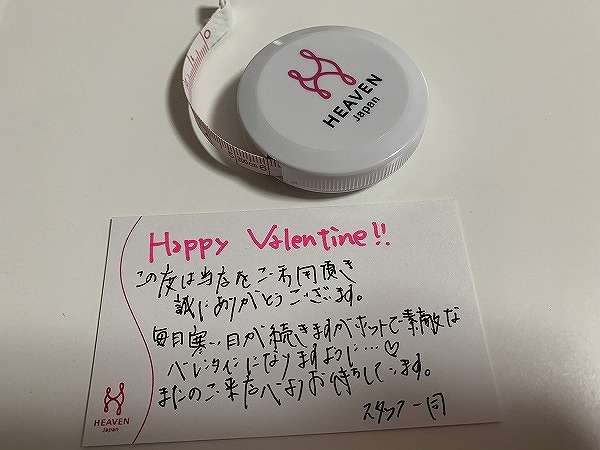 HEAVEN
Japan
200 cm
Happy Valentine!!
この度は当店をご利用頂き
誠にありがとうございます。
毎日寒い日が続きますがホットで素敵な
バレンタインになりますように…♡
またのご来店心よりお待ちしています。
スタッフ一同
HEAVEN
Japan